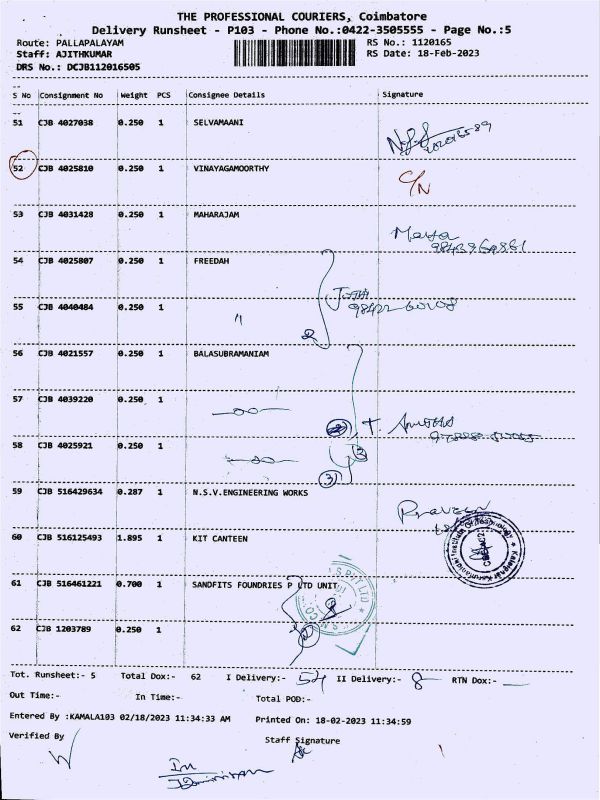 THE PROFESSIONAL COURIERS, Coimbatore
Delivery Runsheet - P103 - Phone No.:0422-3505555 - Page No.:5
Route: PALLAPALAYAM RS No.: 1120165
Staff: AJITHKUMAR RS Date: 18-Feb-2023
DRS No.: DCJB112016505
S No Consignment No Weight PCS Consignee Details Signature
51 CJB 4027038 0.250 1 SELVAMAANI
52 CJB 4025810 0.250 1 VINAYAGAMOORTHY C/N
53 CJB 4031428 0.250 1 MAHARAJAM
54 CJB 4025807 0.250 1 FREEDAH
55 CJB 4040484 0.250 1 "
2
56 CJB 4021557 0.250 1 BALASUBRAMANIAM
57 CJB 4039220 0.250 1
58 CJB 4025921 0.250 1
3
59 CJB 516429634 0.287 1 N.S.V.ENGINEERING WORKS
Praveen
60 CJB 516125493 1.895 1 KIT CANTEEN
61 CJB 516461221 0.700 1 SANDFITS FOUNDRIES P LTD UNIT
62 CJB 1203789 0.250 1
Tot. Runsheet:- 5 Total Dox:- 62 I Delivery:- 54 II Delivery:- 8 RTN Dox:- —
Out Time:- In Time:- Total POD:-
Entered By :KAMALA103 02/18/2023 11:34:33 AM Printed On: 18-02-2023 11:34:59
Verified By Staff Signature